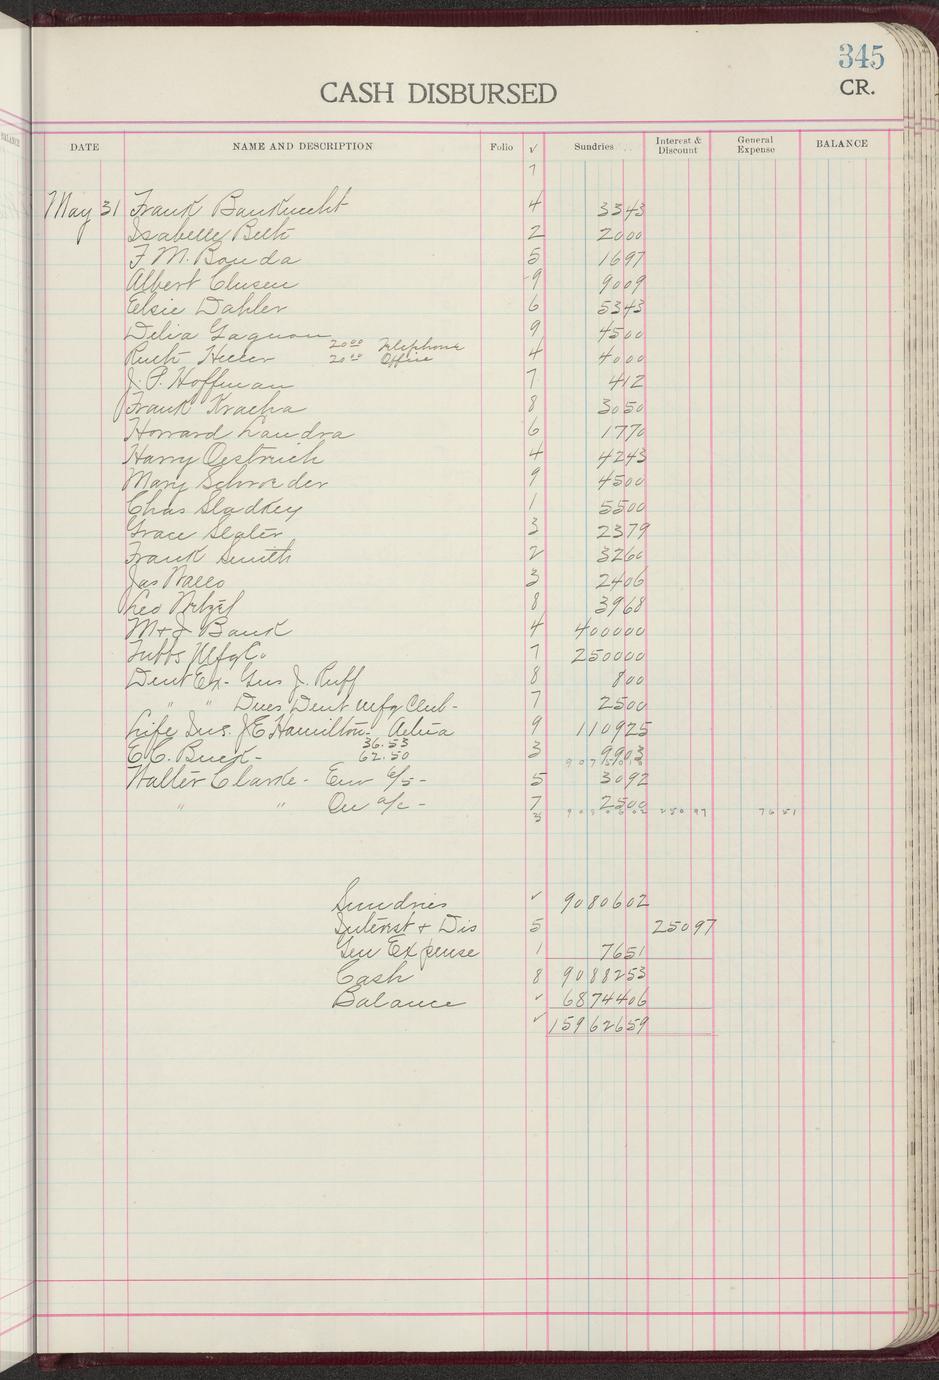 345
CASH DISBURSED
CR.
DATE NAME AND DESCRIPTION Folio ✓ Sundries Interest & Discount General Expense BALANCE
7
May 31 Frank Bauknecht 4 3343
Isabelle Beth 2 2000
F M. Bouda 5 1697
Albert Clusen 9 9009
Elsie Dahler 6 5343
Delia Gagnon 9 4500
20 00 Telephone
Ruth Heller 20 00 Office 4 4000
J. P. Hoffman 7 412
Frank Kracha 8 3050
Howard Landra 6 1770
Harry Oestreich 4 4243
Mary Schroeder 9 4500
Chas Sladkey 1 5500
Grace Slater 3 2379
Frank Smith 2 3260
Jas Wallo 3 2406
Leo Wetzel 8 3968
M + J Bank 4 400000
Tubbs Mfg Co 7 250000
Dent Ex- Gus J. Ruff 8 800
" " Dues Dent Mfg Club- 7 2500
Life Ins. J E Hamilton- Aetna 9 110925
36.53
E C. Buck- 62.50 3 9903
Walter Clarke- Euv a/s- 5 3092
" " On a/c - 7 2500
3 9080602 25097 7651
Sundries ✓ 9080602
Interest + Dis 5 25097
Gen Expense 1 7651
Cash 8 9088253
Balance ✓ 6874406
✓ 15962659